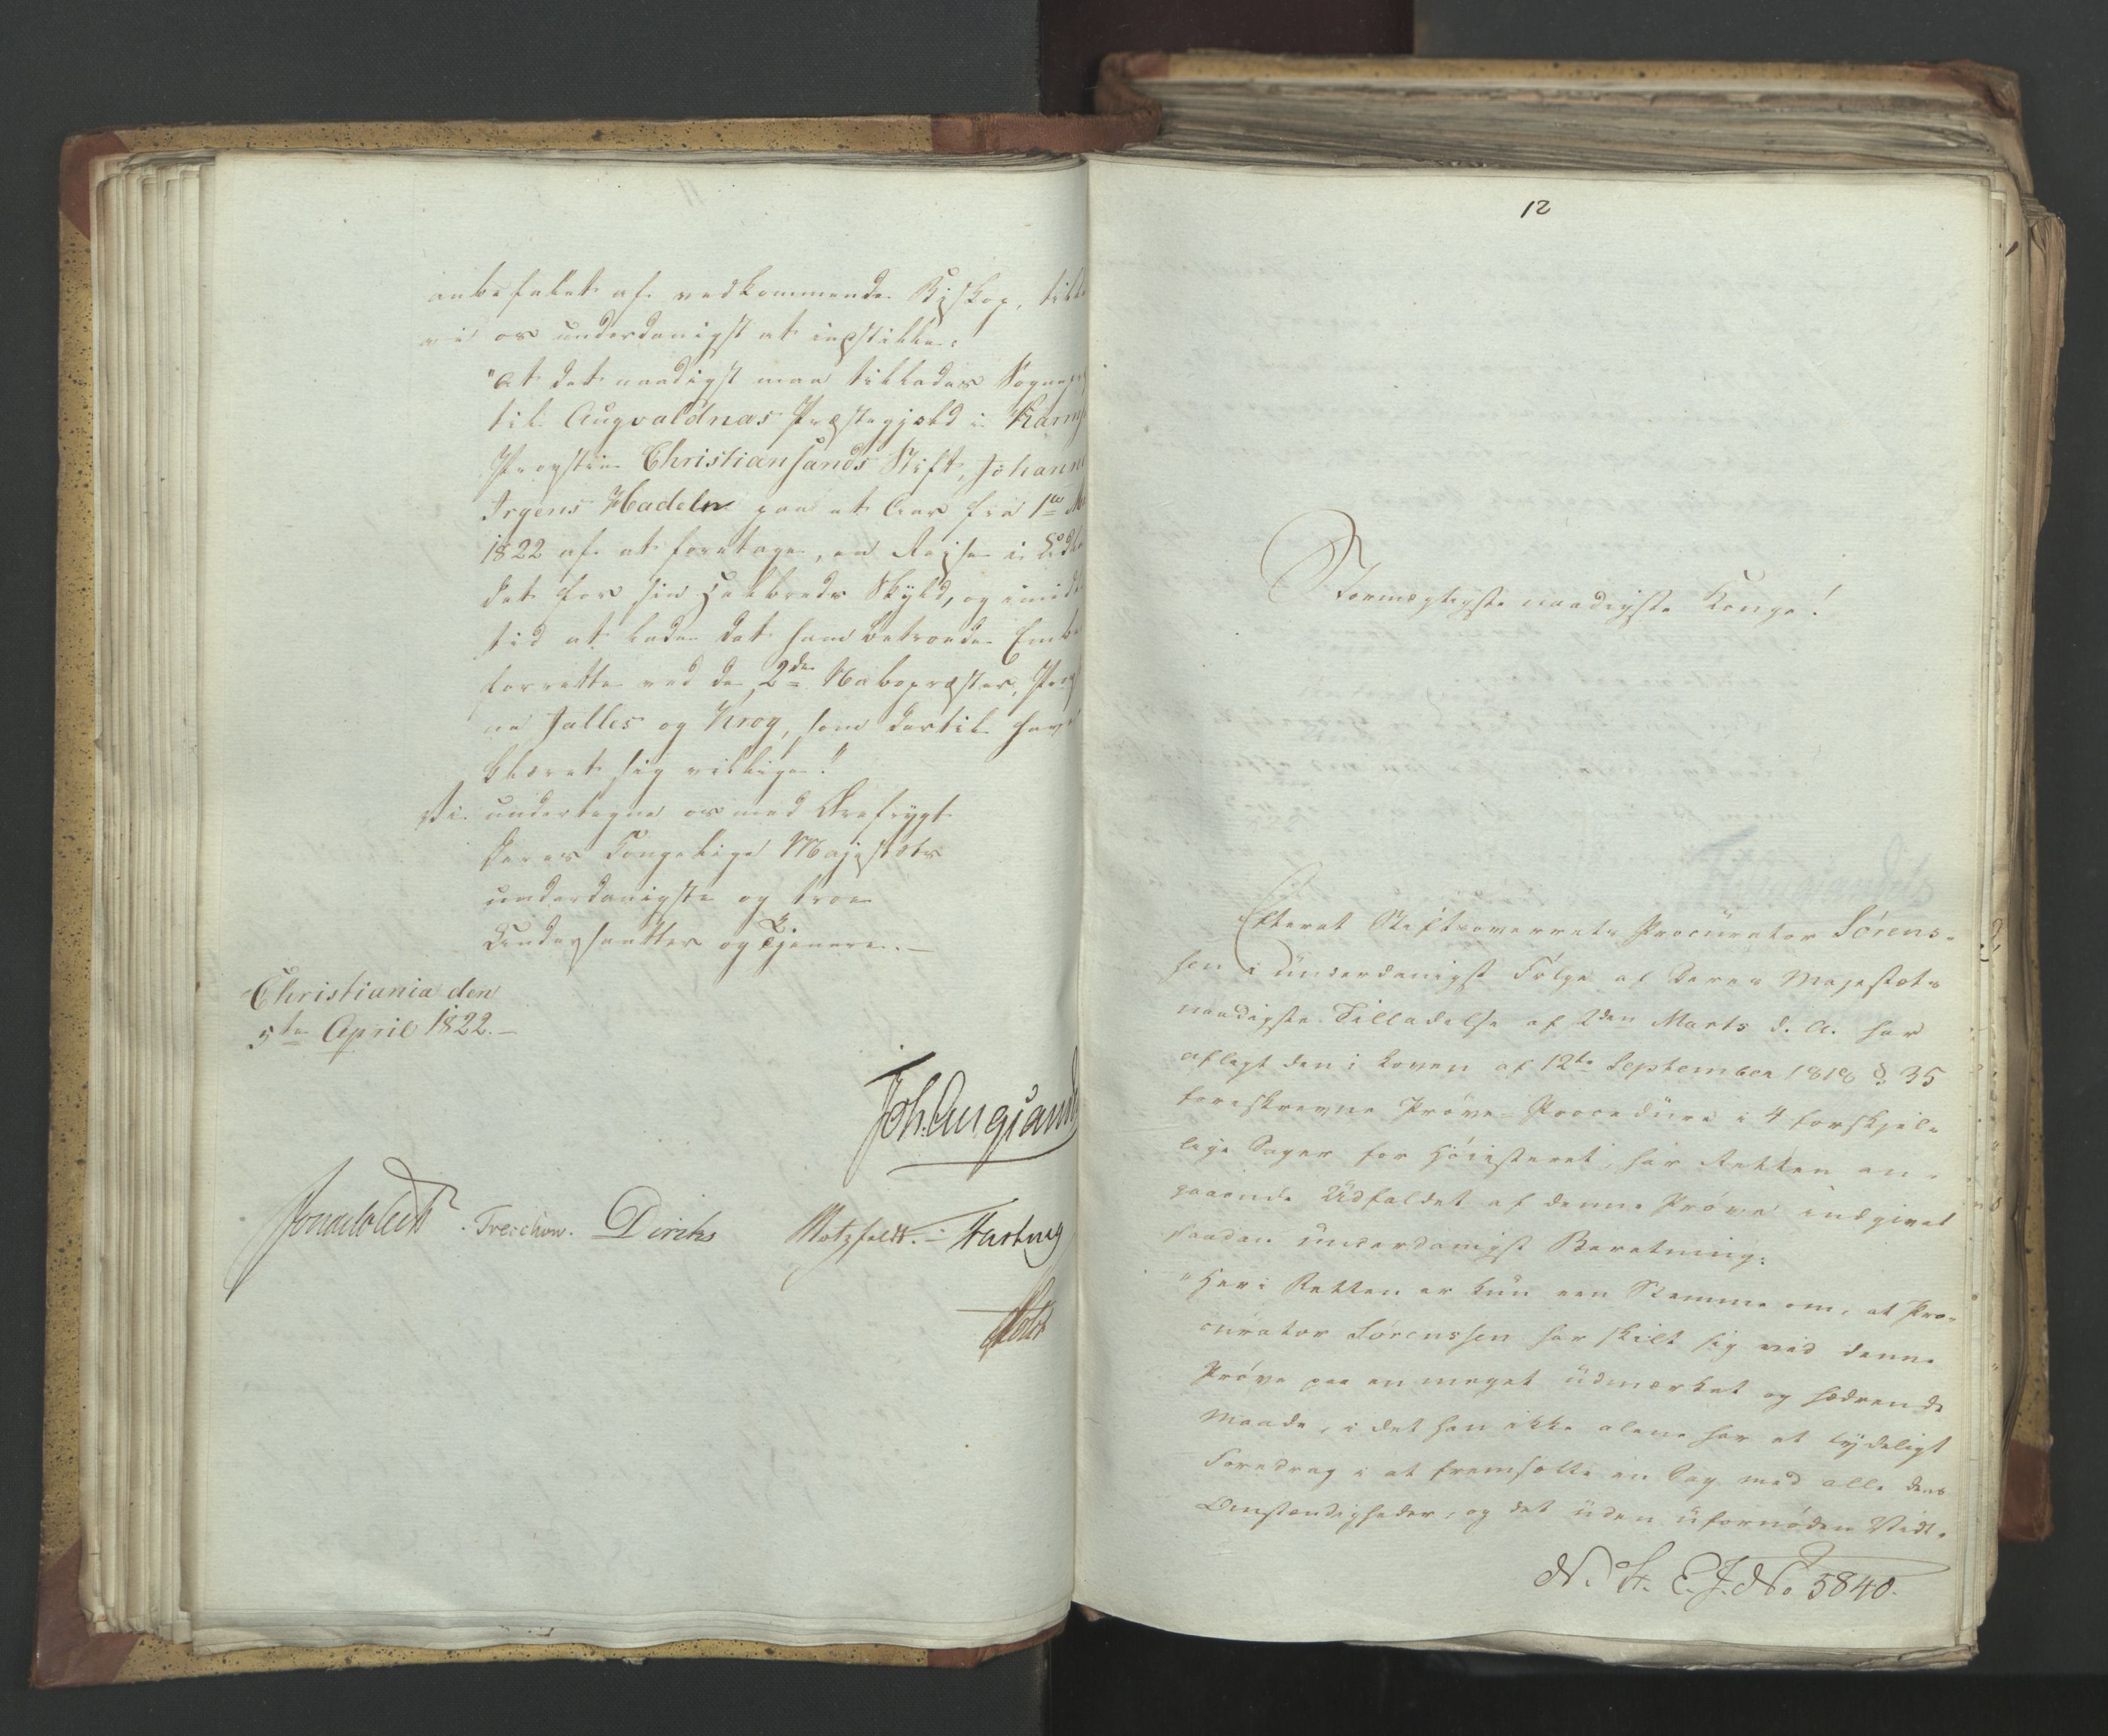 anbefalet af vedkommende Biskop, till
vi os underdanigst at indstille:
"At det naadigst maa tillades Sognepr
til Augvaldnæs Præstegjeld i Karms
Provstie Christiansands Stift, Johann
Irgens Hadeln paa et Aar fra 1ste M
1822 af at foretage en Reise i Udla
det for sin Helbreds Skyld, og imid
tid at lade det ham betroede Embe
forrette ved de 2de Nabopræster, Her
ne Jalles og Krog, som dertil have
klæret sig villige."
Vi undertegne os med Ærefrygt
Deres Kongelige Majestæts
underdanigste og troe
Undersaatter og Tjenere.—
Christiania den
5te April 1822.—
Joh. Aug. Sand
Sommerfeldt Treschow. Diriks Motzfeldt. Fasting
Holst
12
Stormægtigste naadigste Konge!
Efterat Stiftsoverrets Procurator Sörens-
sen i underdanigst Fölge af Deres Majestæts
naadigste Tilladelse af 2den Marts d. A. har
aflagt den i Loven af 12te September 1818 § 35
foreskrevne Pröve-Procedure i 4 forskjel-
lige Sager for Höiesteret, har Retten an-
gaaende Udfaldet af denne Pröve indgivet
saadan underdanigst Beretning:
"Her i Retten er kun een Stemme om, at Pro-
curator Sörenssen har skilt sig ved denne
Pröve paa en meget udmærket og hædrende
Maade, i det han ikke alene har et tydeligt
Foredrag i at fremsætte en Sag med alle dens
Omstændigheder, og det uden ufornöden Vidt-
N. St. E. J. No 5840.